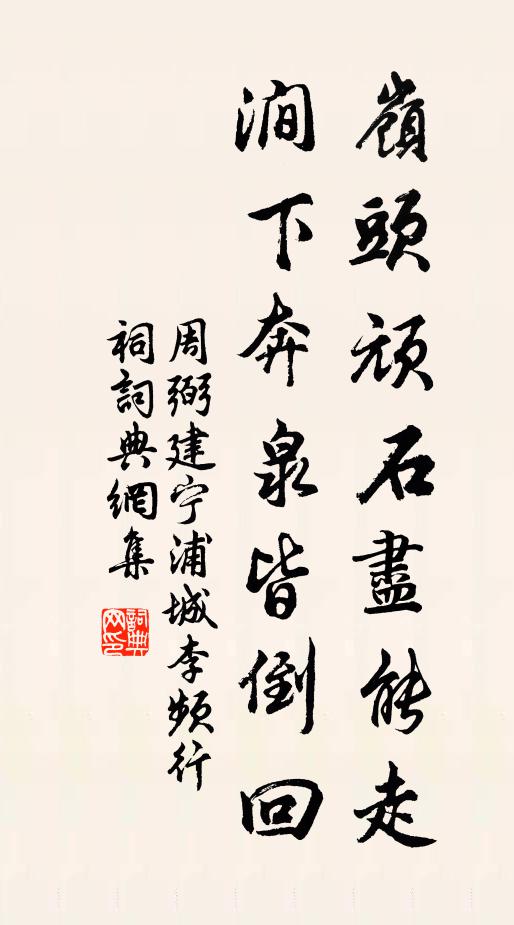 嶺頭頑石盡能走
澗下奔泉皆倒回
周弼建宁浦城李頻行
祠詞典網集
詞典网印